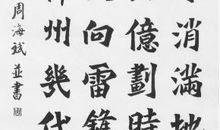 消滿地
億劃時
向雷鋒
州幾代
周海斌並書